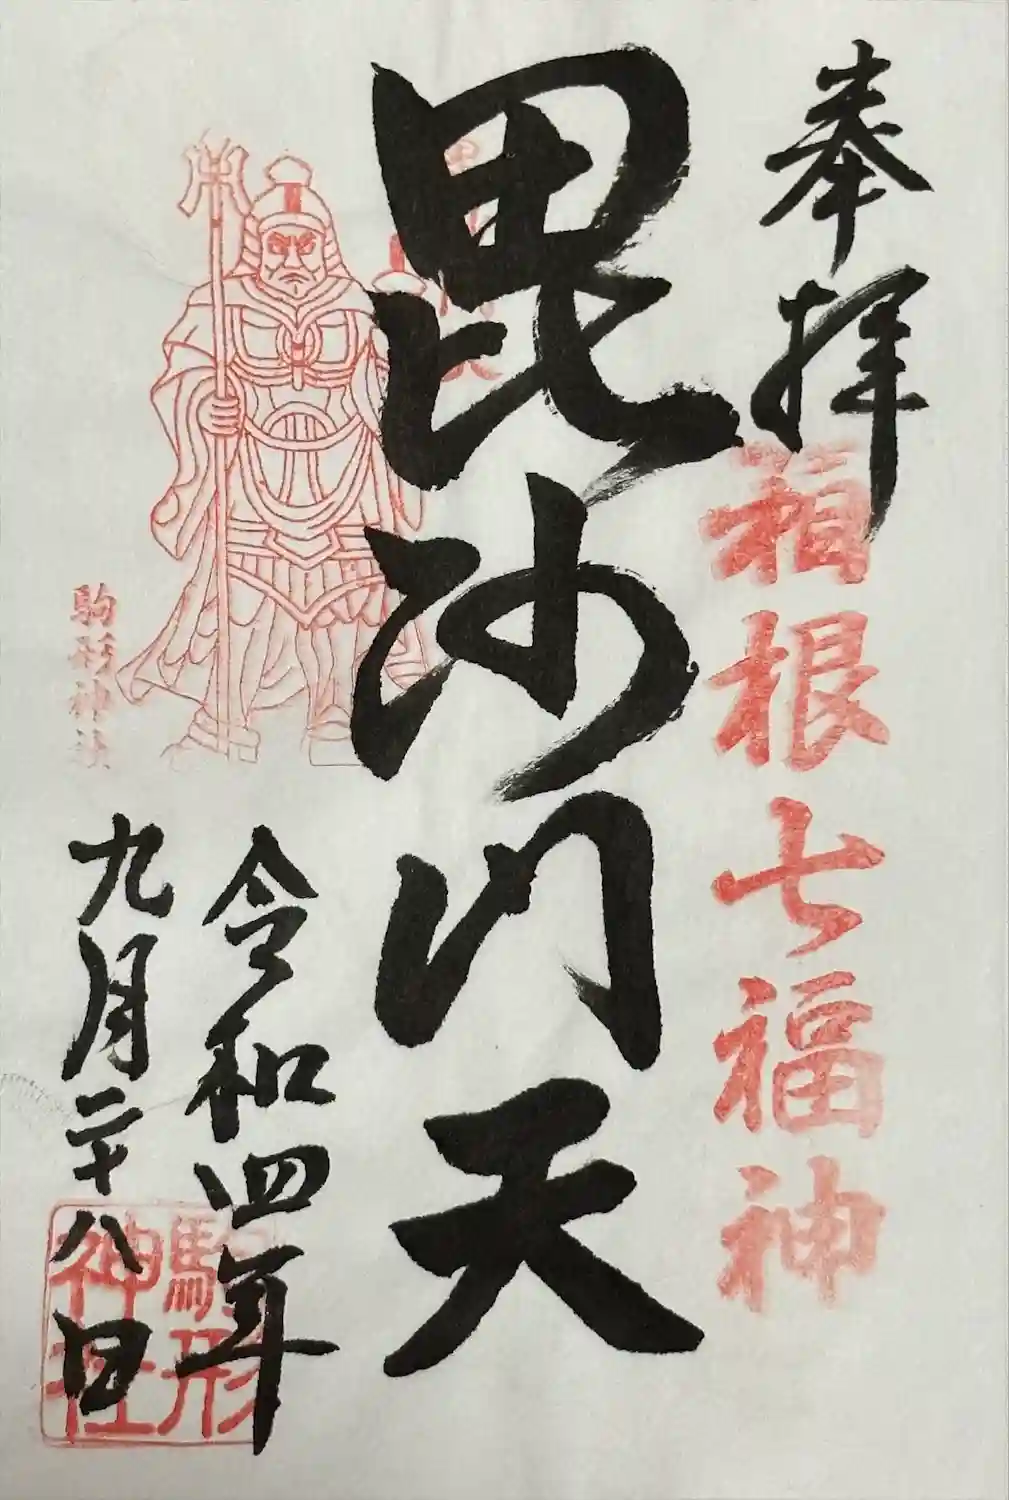 奉拝
箱根七福神
毘沙门天
駒形神社
令和四年
九月二十八日
駒形
神社